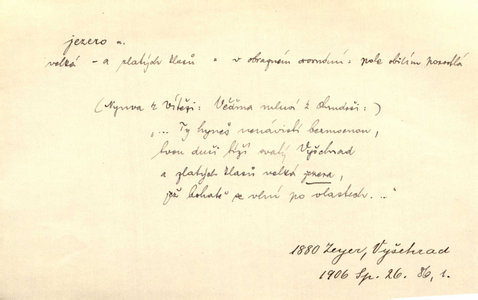 jezero n.
velká - a zlatých klasů = v obrazném srovnání: pole obilím porostlá
(Nynva z Vítězi: Věčina mluví k Chudoši:)
"... Ty hyneš nenávistí bezmocnou,
tvou duši tíží svatý Vyšehrad
a zlatých klasů velká jezera,
jež bohatě se vlní po vlastech..."
1880 Zeyer, Vyšehrad
1906 Sp. 26. 86, 1.